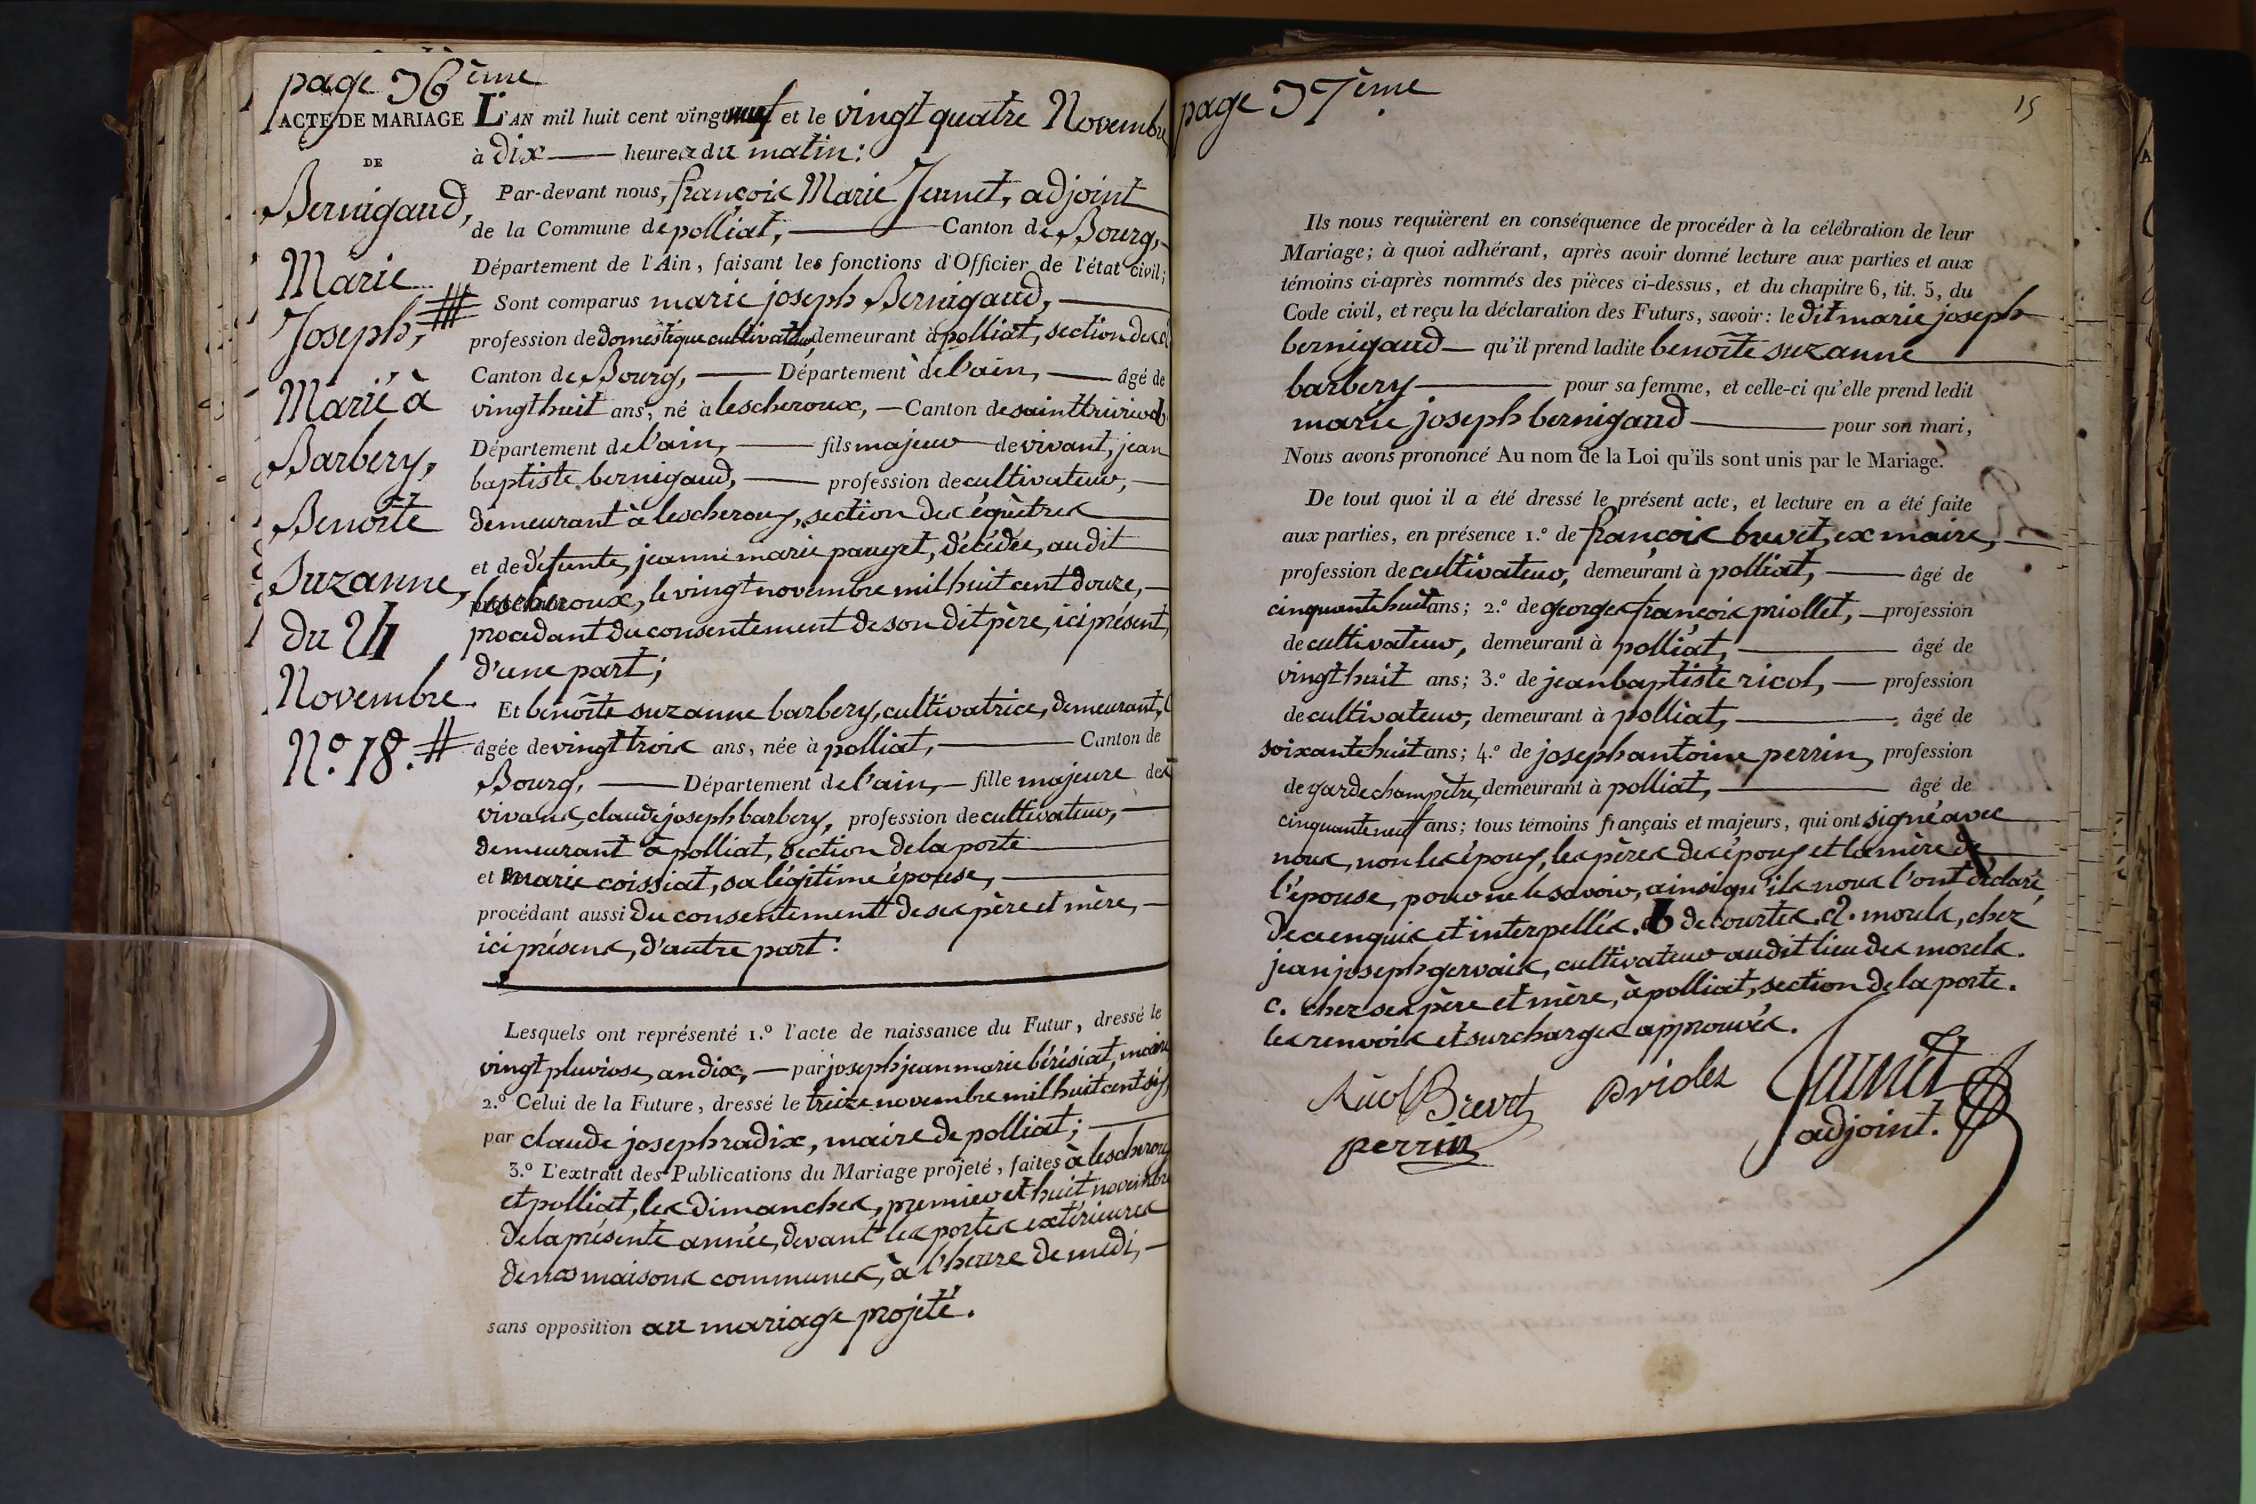 page 36ème
ACTE DE MARIAGE
DE
Bernigaud,
Marie
Joseph,
Marié à
Barbery,
Benoîte
Suzanne,
du 24
Novembre
N.º 18.
L'AN mil huit cent vingt neuf et le vingt quatre Novembre
à dix — heures du matin:
Par-devant nous, françois Marie Jannet, adjoint
de la Commune de polliat, — Canton de Bourg,
Département de l'Ain, faisant les fonctions d'Officier de l'état civil;
Sont comparus marie joseph Bernigaud, —
profession de domestique cultivateur, demeurant à polliat, section des a
Canton de Bourg, — Département de l'ain, — âgé de
vingt huit ans, né à lescheroux, — Canton de saint trivier b
Département de l'ain, — fils majeur de vivant, jean
baptiste bernigaud, — profession de cultivateur, —
demeurant à lescheroux, section des éguêtres
et de défunte, jeanne marie pauget, décédée, audit
lescheroux, le vingt novembre mil huit cent douze, —
procédant du consentement de son dit père, ici présent,
d'une part;
Et benoîte suzanne barbery, cultivatrice, demeurant, c
âgée de vingt trois ans, née à polliat, — Canton de
Bourg, — Département de l'ain, — fille majeure des
vivans, claude joseph barbery, profession de cultivateur, —
demeurant à polliat, section de la porte
et marie coissiat, sa légitime épouse, —
procédant aussi du consentement de ses père et mère, —
ici présens, d'autre part:
Lesquels ont représenté 1.º l'acte de naissance du Futur, dressé le
vingt pluviose, an dix, — par joseph jean marie bérésiat, maire
2.º Celui de la Future, dressé le treize novembre mil huit cent six,
par claude joseph radix, maire de polliat; —
3.º L'extrait des Publications du Mariage projeté, faites à lescheroux
et polliat, les dimanches, premier et huit novembre
de la présente année, devant les portes extérieures
de nos maisons communes, à l'heure de midi, —
sans opposition au mariage projeté.
page 37ème
15
Ils nous requièrent en conséquence de procéder à la célébration de leur
Mariage; à quoi adhérant, après avoir donné lecture aux parties et aux
témoins ci-après nommés des pièces ci-dessus, et du chapitre 6, tit. 5, du
Code civil, et reçu la déclaration des Futurs, savoir: le dit marie joseph
bernigaud — qu'il prend ladite benoîte suzanne
barbery — pour sa femme, et celle-ci qu'elle prend ledit
marie joseph bernigaud — pour son mari,
Nous avons prononcé Au nom de la Loi qu'ils sont unis par le Mariage.
De tout quoi il a été dressé le présent acte, et lecture en a été faite
aux parties, en présence 1.º de françois brevet, ex maire, —
profession de cultivateur, demeurant à polliat, — âgé de
cinquante huit ans; 2.º de georges françois priollet, — profession
de cultivateur, demeurant à polliat, — âgé de
vingt huit ans; 3.º de jean baptiste ricol, — profession
de cultivateur, demeurant à polliat, — âgé de
soixante huit ans; 4.º de joseph antoine perrin, profession
de garde champêtre, demeurant à polliat, — âgé de
cinquante neuf ans; tous témoins français et majeurs, qui ont signé avec
nous, non les époux, les pères des époux et la mère de
l'épouse, pour ne le savoir, ainsi qu'ils nous l'ont déclaré,
de ce enquis et interpellés. b de courtes. a. morels, chez
jean joseph gervais, cultivateur audit lieu des morels.
c. chez ses père et mère, à polliat, section de la porte.
les renvois et surcharges approuvés.
Ricol Brevet Jannet
perrin adjoint.